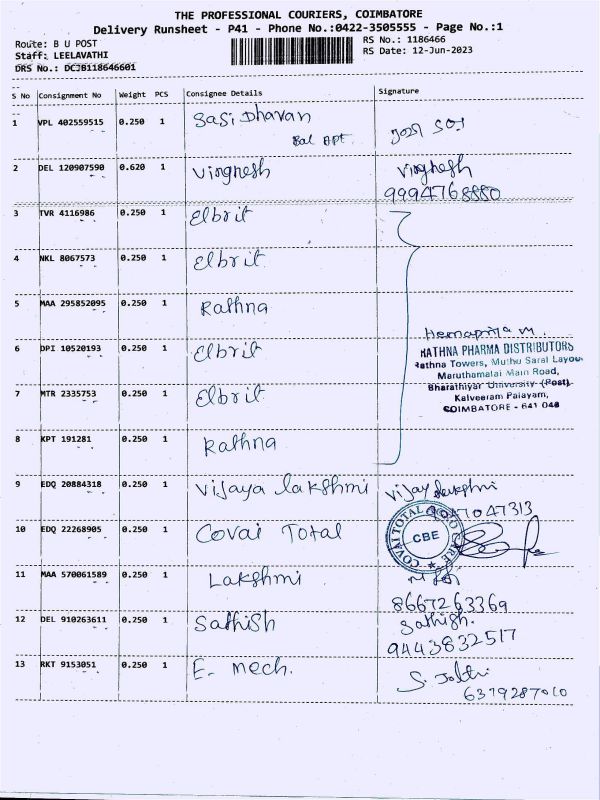 THE PROFESSIONAL COURIERS, COIMBATORE
Delivery Runsheet - P41 - Phone No.:0422-3505555 - Page No.:1
Route: B U POST
RS No.: 1186466
Staff: LEELAVATHI
RS Date: 12-Jun-2023
DRS No.: DCJB118646601
S No Consignment No Weight PCS Consignee Details Signature
1 VPL 402559515 0.250 1 Sasi Dhavan
Bal APT.
2 DEL 120907590 0.620 1 Virgnesh Virgnesh
9994768880
3 TVR 4116986 0.250 1 Elbrit
4 NKL 8067573 0.250 1 Elbrit
5 MAA 295852095 0.250 1 Rathna
Hemapriya M.
6 DPI 10520193 0.250 1 Elbrit RATHNA PHARMA DISTRIBUTORS
Rathna Towers, Muthu Saral Layout
Maruthamalai Main Road,
7 MTR 2335753 0.250 1 Elbrit Bharathiyar University (Post),
Kalveeram Palayam,
COIMBATORE - 641 046
8 KPT 191281 0.250 1 Rathna
9 EDQ 20884318 0.250 1 Vijaya lakshmi Vijay lakshmi
47313
10 EDQ 22268905 0.250 1 Covai Total COVAI TOTAL CARE CBE
11 MAA 570061589 0.250 1 Lakshmi
8667263369
12 DEL 910263611 0.250 1 Sathish Sathish.
9443832517
13 RKT 9153051 0.250 1 E. mech. S. Jothi
6379287010